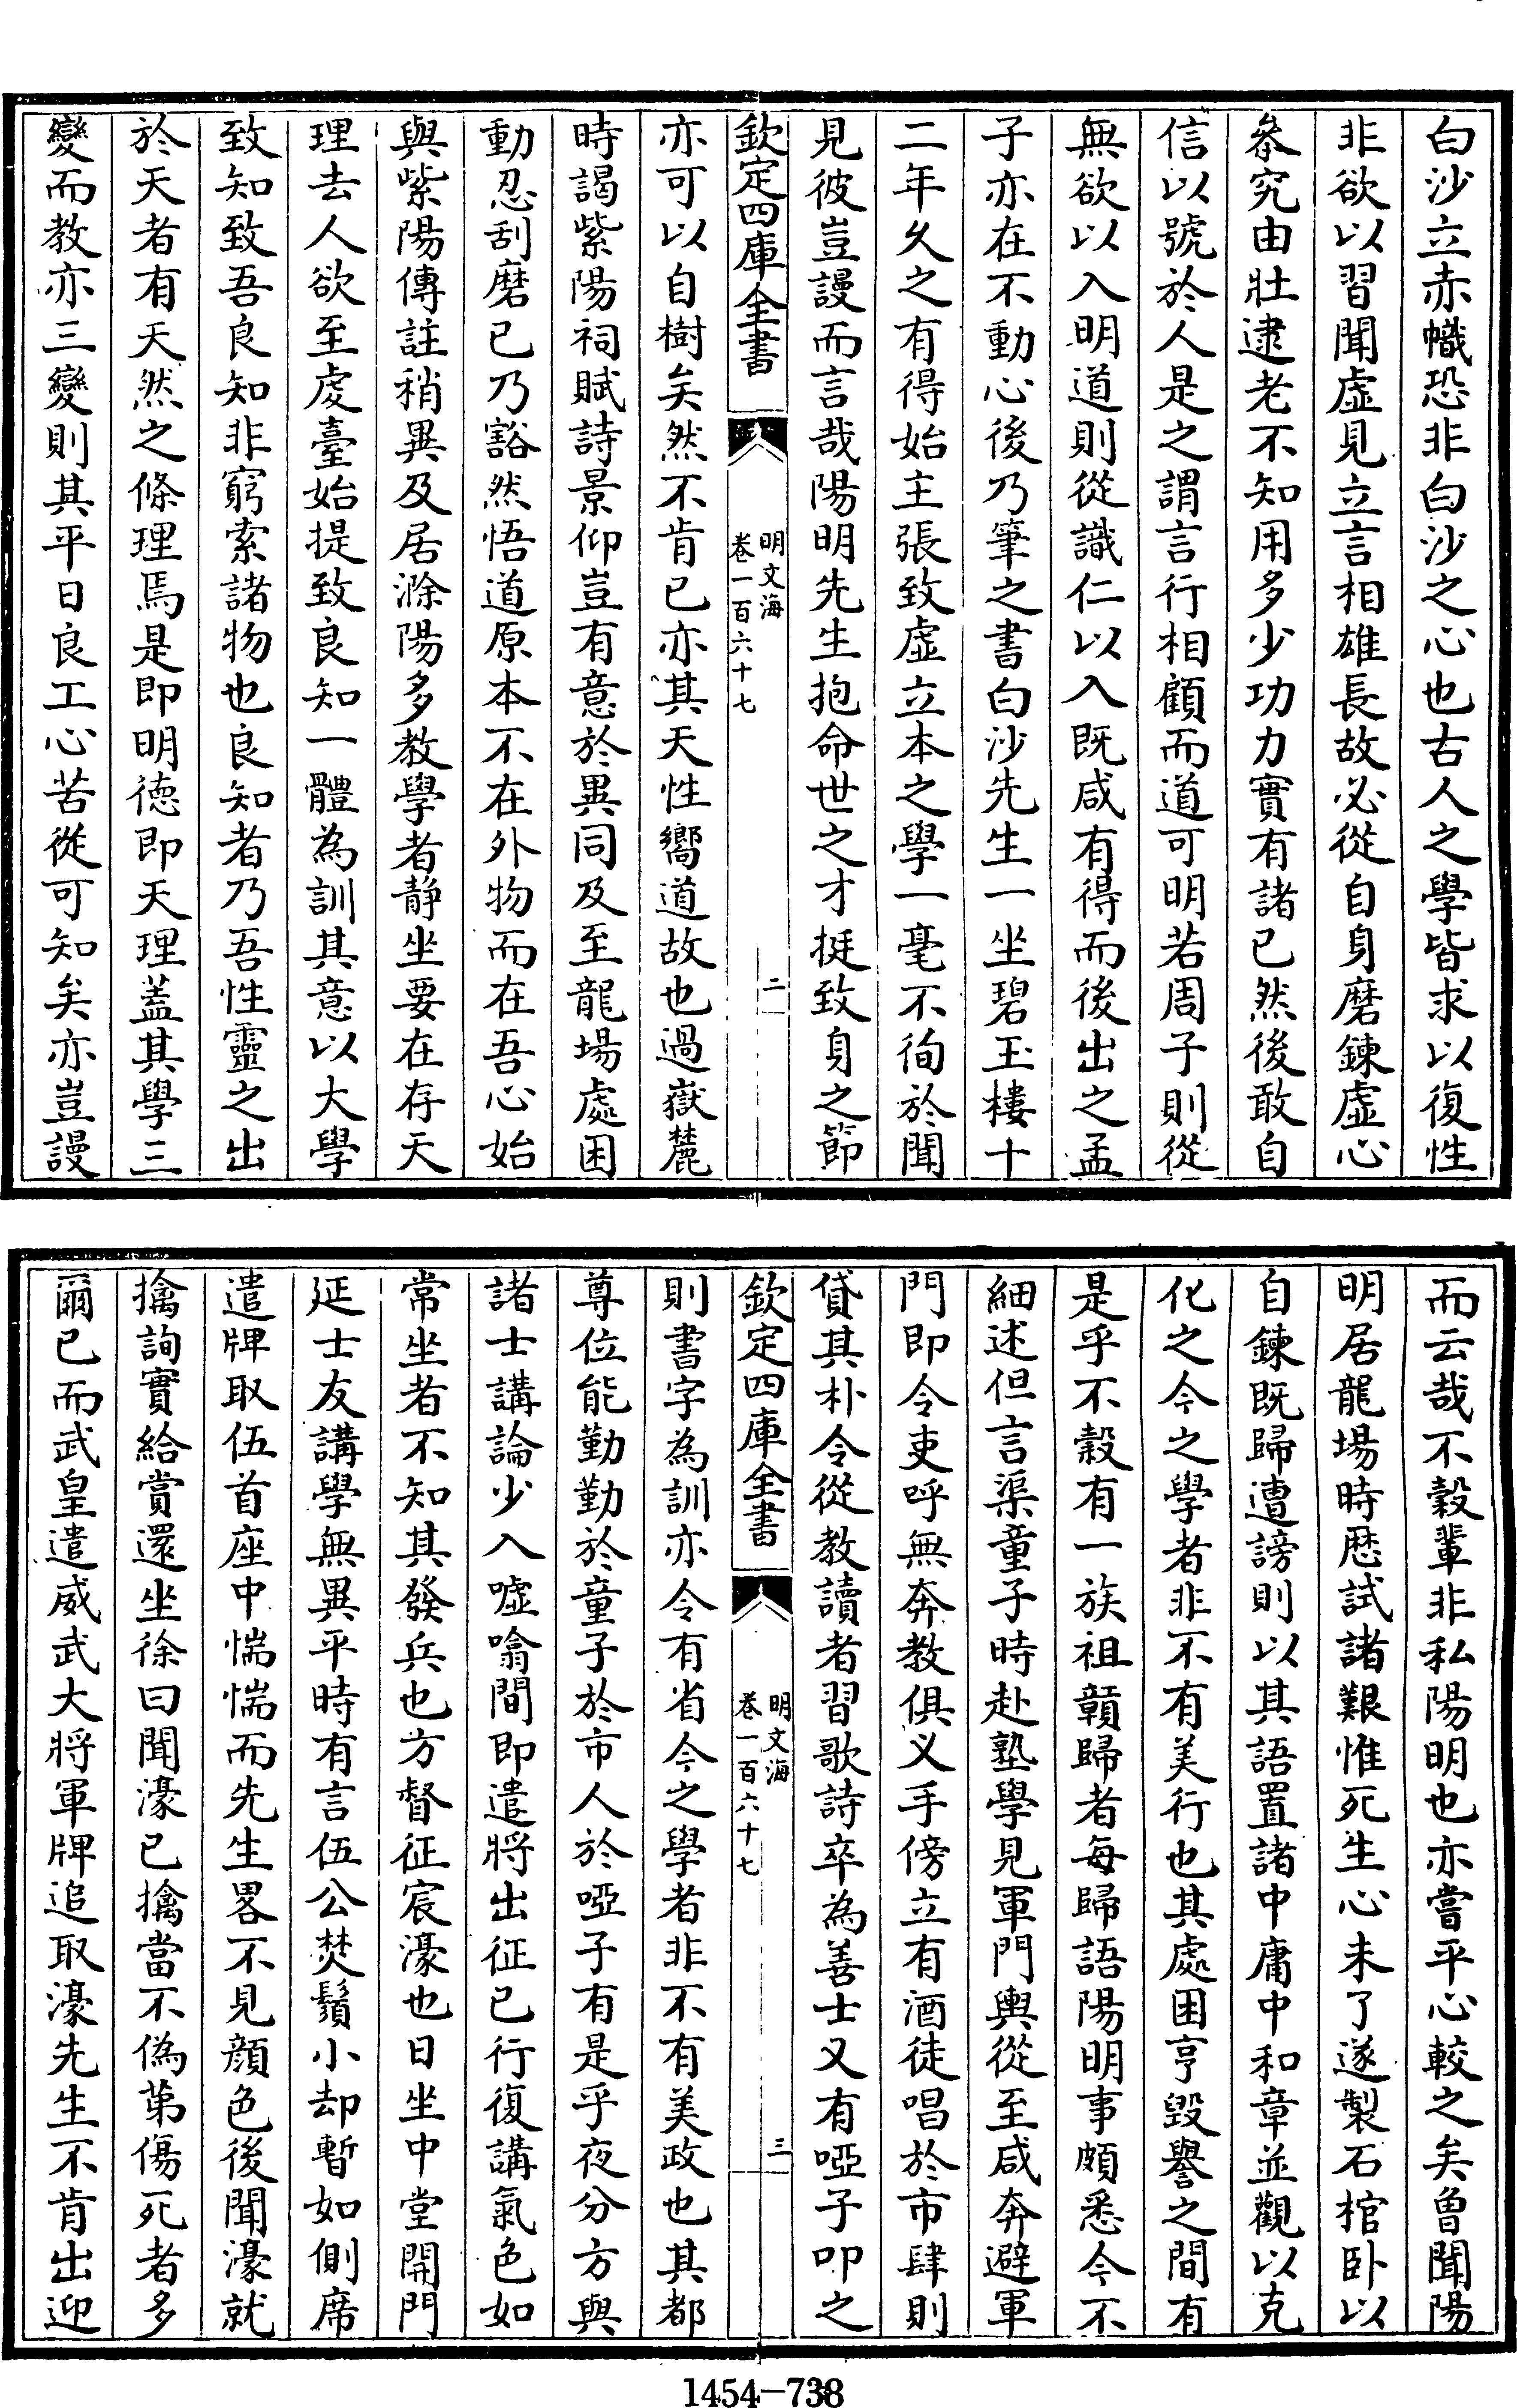 白沙立赤幟恐非白沙之心也古人之學皆求以復性
非欲以習聞虛見立言相雄長故必從自身磨鍊虛心
叅究由壯逮老不知用多少功力實有諸已然後敢自
信以號於人是之謂言行相顧而道可明若周子則從
無欲以入明道則從識仁以入既咸有得而後出之孟
子亦在不動心後乃筆之書白沙先生一坐碧玉樓十
二年乆之有得始主張致虛立本之學一毫不徇於聞
見彼豈謾而言哉陽明先生抱命世之才挺致身之節
欽定四庫全書
明文海
卷一百六十七
二
亦可以自樹矣然不肯已亦其天性嚮道故也過嶽麓
時謁紫陽祠賦詩景仰豈有意於異同及至龍場處困
動忍刮磨已乃豁然悟道原本不在外物而在吾心始
與紫陽傳註稍異及居滁陽多教學者靜坐要在存天
理去人欲至虔臺始提致良知一體為訓其意以大學
致知致吾良知非窮索諸物也良知者乃吾性靈之出
於天者有天然之條理焉是即明徳即天理葢其學三
變而教亦三變則其平日良工心苦從可知矣亦豈謾
而云哉不穀輩非私陽明也亦嘗平心較之矣曾聞陽
明居龍場時歴試諸艱惟死生心未了遂製石棺卧以
自鍊既歸遭謗則以其語置諸中庸中和章並觀以克
化之今之學者非不有美行也其處困亨毀譽之間有
是乎不穀有一族祖贛歸者每歸語陽明事頗悉今不
細述但言渠童子時赴塾學見軍門輿從至咸奔避軍
門即令吏呼無奔教俱义手傍立有酒徒唱於市肆則
貸其朴令從教讀者習歌詩卒為善士又有啞子叩之
欽定四庫全書
明文海
卷一百六十七
三
則書字為訓亦令有省今之學者非不有美政也其都
尊位能勤勤於童子於市人於啞子有是乎夜分方與
諸士講論少入噓噏間即遣將出征已行復講氣色如
常坐者不知其發兵也方督征宸濠也日坐中堂開門
延士友講學無異平時有言伍公焚鬚小却暫如側席
遣牌取伍首座中惴惴而先生畧不見顔色後聞濠就
擒詢實給賞還坐徐曰聞濠已擒當不偽第傷死者多
爾已而武皇遣威武大將軍牌追取濠先生不肯出迎
1454-738